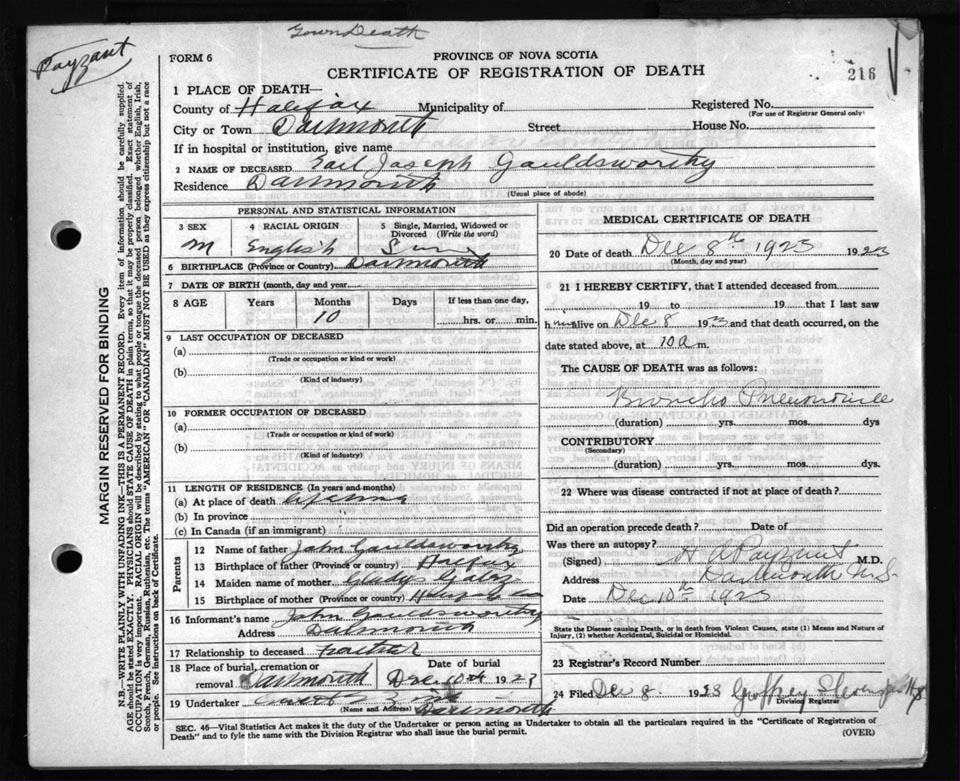 Payzant
Town Death
FORM 6
PROVINCE OF NOVA SCOTIA
CERTIFICATE OF REGISTRATION OF DEATH
216
1 PLACE OF DEATH—
County of Halifax Municipality of Registered No.
(For use of Registrar General only)
City or Town Dartmouth Street House No.
If in hospital or institution, give name
2 NAME OF DECEASED Earl Joseph Gauldsworthy
Residence Dartmouth
(Usual place of abode)
PERSONAL AND STATISTICAL INFORMATION
3 SEX 4 RACIAL ORIGIN 5 Single, Married, Widowed or Divorced (Write the word)
M English Sin
6 BIRTHPLACE (Province or Country) Dartmouth
7 DATE OF BIRTH (month, day and year)
8 AGE Years Months Days If less than one day,
10 hrs. or min.
9 LAST OCCUPATION OF DECEASED
(a)
(Trade or occupation or kind or work)
(b)
(Kind of industry)
10 FORMER OCCUPATION OF DECEASED
(a)
(Trade or occupation or kind or work)
(b)
(Kind of industry)
11 LENGTH OF RESIDENCE (In years and months)
(a) At place of death
(b) In province
(c) In Canada (if an immigrant)
Parents
12 Name of father John Gauldsworthy
13 Birthplace of father (Province or country) Halifax
14 Maiden name of mother Gladys
15 Birthplace of mother (Province or country)
16 Informant's name John Gauldsworthy
Address Dartmouth
17 Relationship to deceased father
18 Place of burial, cremation or removal Dartmouth Date of burial Dec 10th 1923
19 Undertaker
(Name and Address) Dartmouth
MEDICAL CERTIFICATE OF DEATH
20 Date of death Dec 8th 1923 1923
(Month, day and year)
21 I HEREBY CERTIFY, that I attended deceased from
19 to 19 that I last saw
him alive on Dec 8 1923 and that death occurred, on the
date stated above, at 10 a m.
The CAUSE OF DEATH was as follows:
Broncho Pneumonia
(duration) yrs. mos. dys
CONTRIBUTORY
(Secondary)
(duration) yrs. mos. dys.
22 Where was disease contracted if not at place of death?
Did an operation precede death? Date of
Was there an autopsy?
(Signed) H A Payzant M.D.
Address Dartmouth N.S.
Date Dec 10th 1923
State the Disease causing Death, or in death from Violent Causes, state (1) Means and Nature of
Injury, (2) whether Accidental, Suicidal or Homicidal.
23 Registrar's Record Number
24 Filed Dec 8 1923 Geoffrey Stevens
Division Registrar
SEC. 46—Vital Statistics Act makes it the duty of the Undertaker or person acting as Undertaker to obtain all the particulars required in the "Certificate of Registration of
Death" and to fyle the same with the Division Registrar who shall issue the burial permit.
(OVER)
MARGIN RESERVED FOR BINDING
N.B.—WRITE PLAINLY WITH UNFADING INK—THIS IS A PERMANENT RECORD. Every item of information should be carefully supplied.
AGE should be stated EXACTLY. PHYSICIANS should STATE CAUSE OF DEATH in plain terms, so that it may be properly classified. Exact statement of
OCCUPATION is very important. RACIAL ORIGIN will be described by stating to what people or tongue the deceased person belonged whether English, Irish,
Scotch, French, German, Russian, Ruthenian, etc. The terms "AMERICAN" OR "CANADIAN" MUST NOT BE USED as they express citizenship but not a race
or people. See instructions on back of Certificate.